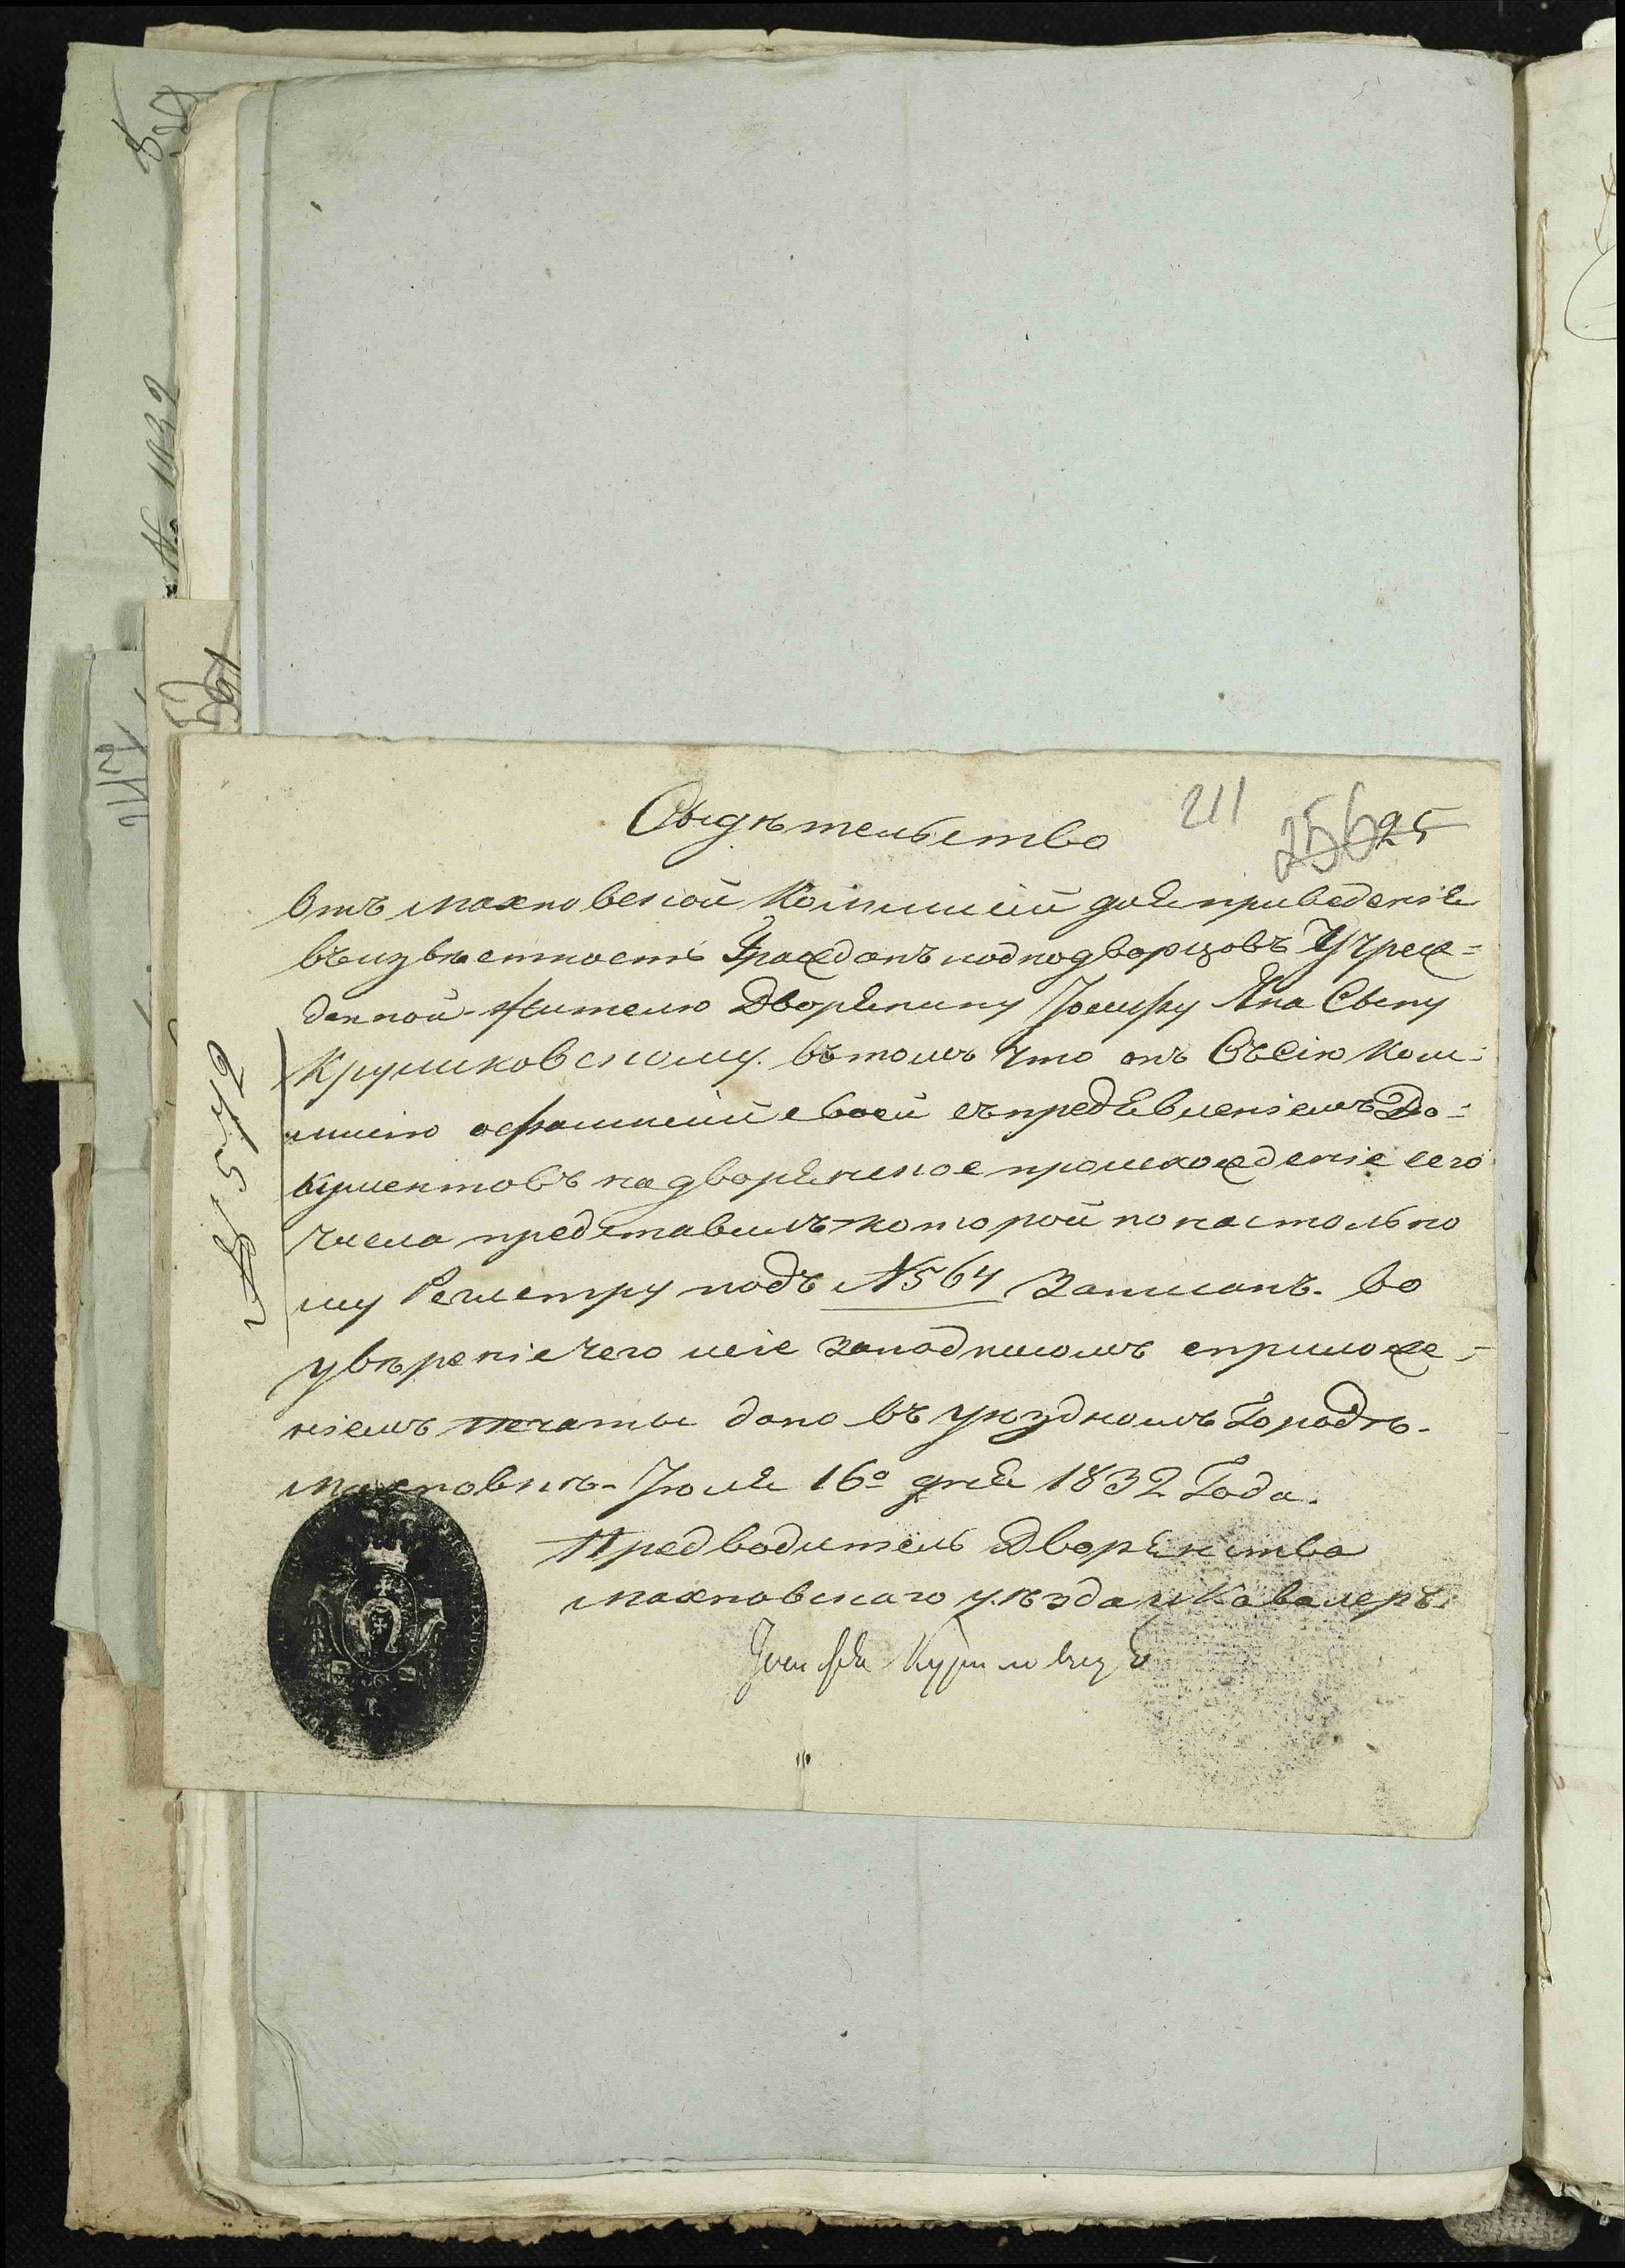 211
256 25
Свидѣтельство
Отъ Махновской Коммиссіи для приведенія
въ извѣстность Гражданъ и однодворцовъ Учреж=
денной Жителю Дворянину Іосифу Яна Сыну
Крушковскому. въ томъ что онъ въ сію Ком=
мисію о фамиліи своей съ предъявленіемъ До=
кументовъ на дворянское происхожденіе сего
числа представилъ которой по настольно
му Регистру подъ №564 Записанъ. Во
увѣреніе чего сіе за подписомъ с приложе=
ніемъ печати дано въ уѣздномъ Городѣ.
Махновкѣ. Іюля 16º дня 1832 Года.
Предводитель Дворянства
Махновскаго уѣзда и Кавалеръ.
№ 572
№ 1032